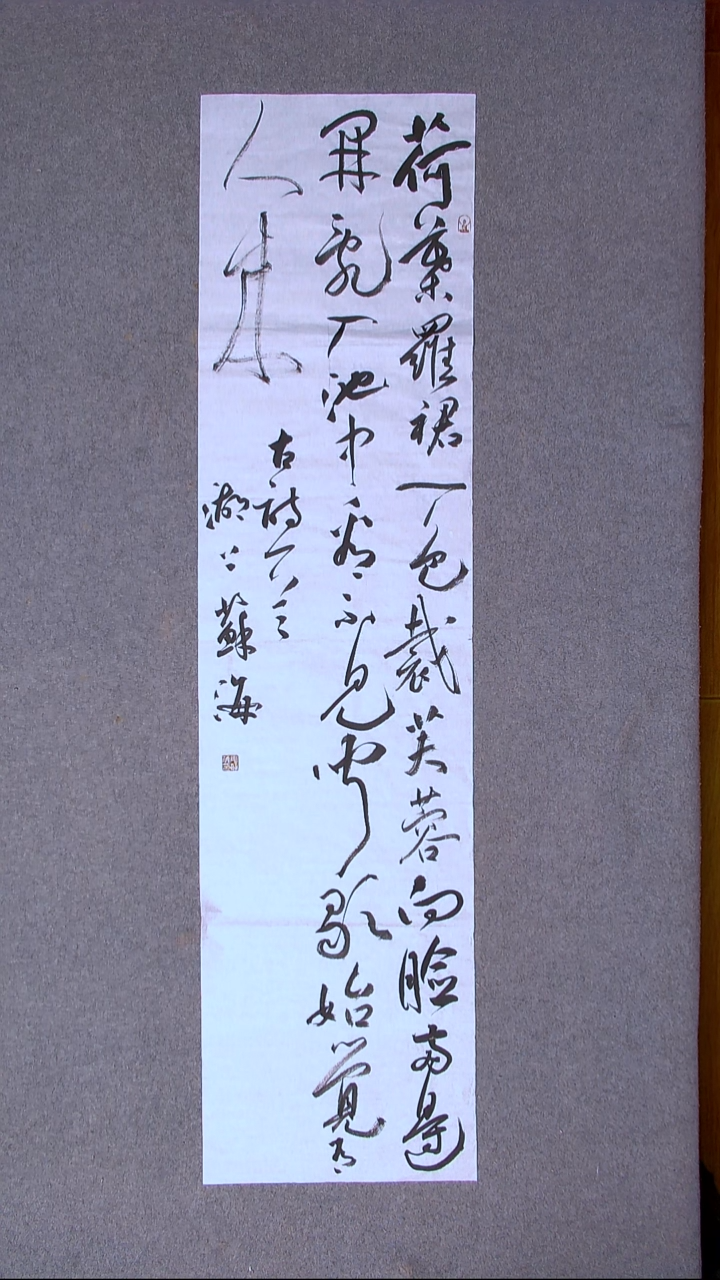 荷葉羅裙一色裁芙蓉向臉兩邊
開亂入池中看不見聞歌始覺有
人來
古詩一首
湖上蘇海